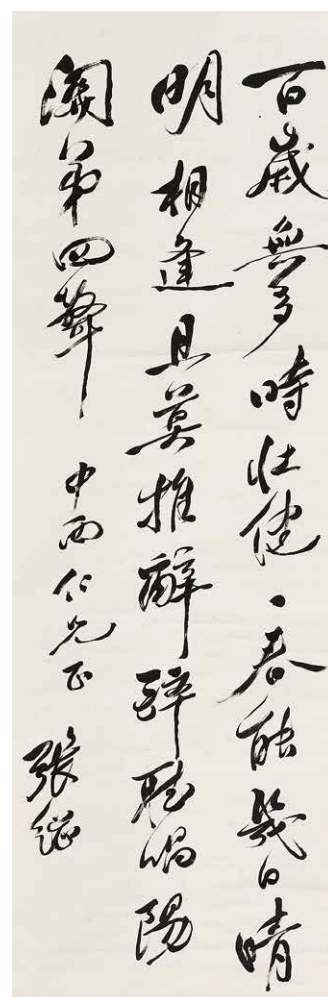 百歲無多時壯健一春能幾日晴
明相逢且莫推辭醉聽唱陽
關第四聲 中 仁兄正 張繼